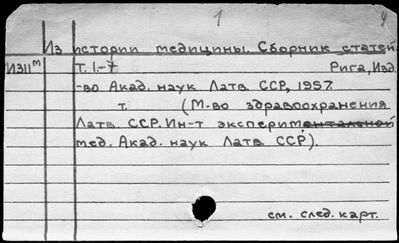 1 4
Из истории медицины. Сборник статей.
И311м Т. 1.-7 Рига, Изд.
-во Акад. наук Латв. ССР, 1957.
т. (М-во здравоохранения
Латв. ССР. Ин-т экспериментальной
мед. Акад. наук Латв. ССР).
см. след. карт.